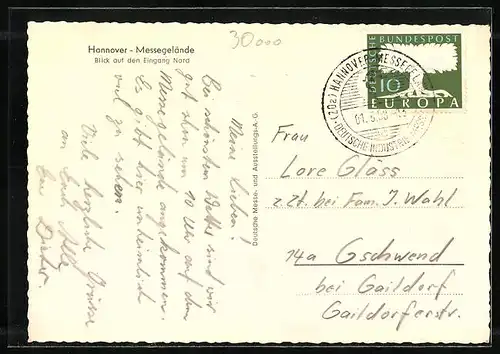 30000
Hannover - Messegelände
Blick auf den Eingang Nord
Meine Lieben!
Bei schönstem Wetter sind wir
gut schon um 10 Uhr auf dem
Messegelände angekommen.
Es gibt hier unheimlich
viel zu sehen.
Viele herzliche Grüsse
an Euch Alle
Eur Dieter.
Deutsche Messe- und Ausstellungs-A.G.
DEUTSCHE BUNDESPOST
10
EUROPA
(20a) HANNOVER-MESSEGELÄNDE
DEUTSCHE INDUSTRIE-MESSE
Frau
Lore Glass
z. Zt. bei Fam. J. Wahl
14a Gschwend
bei Gaildorf
Gaildorferstr.